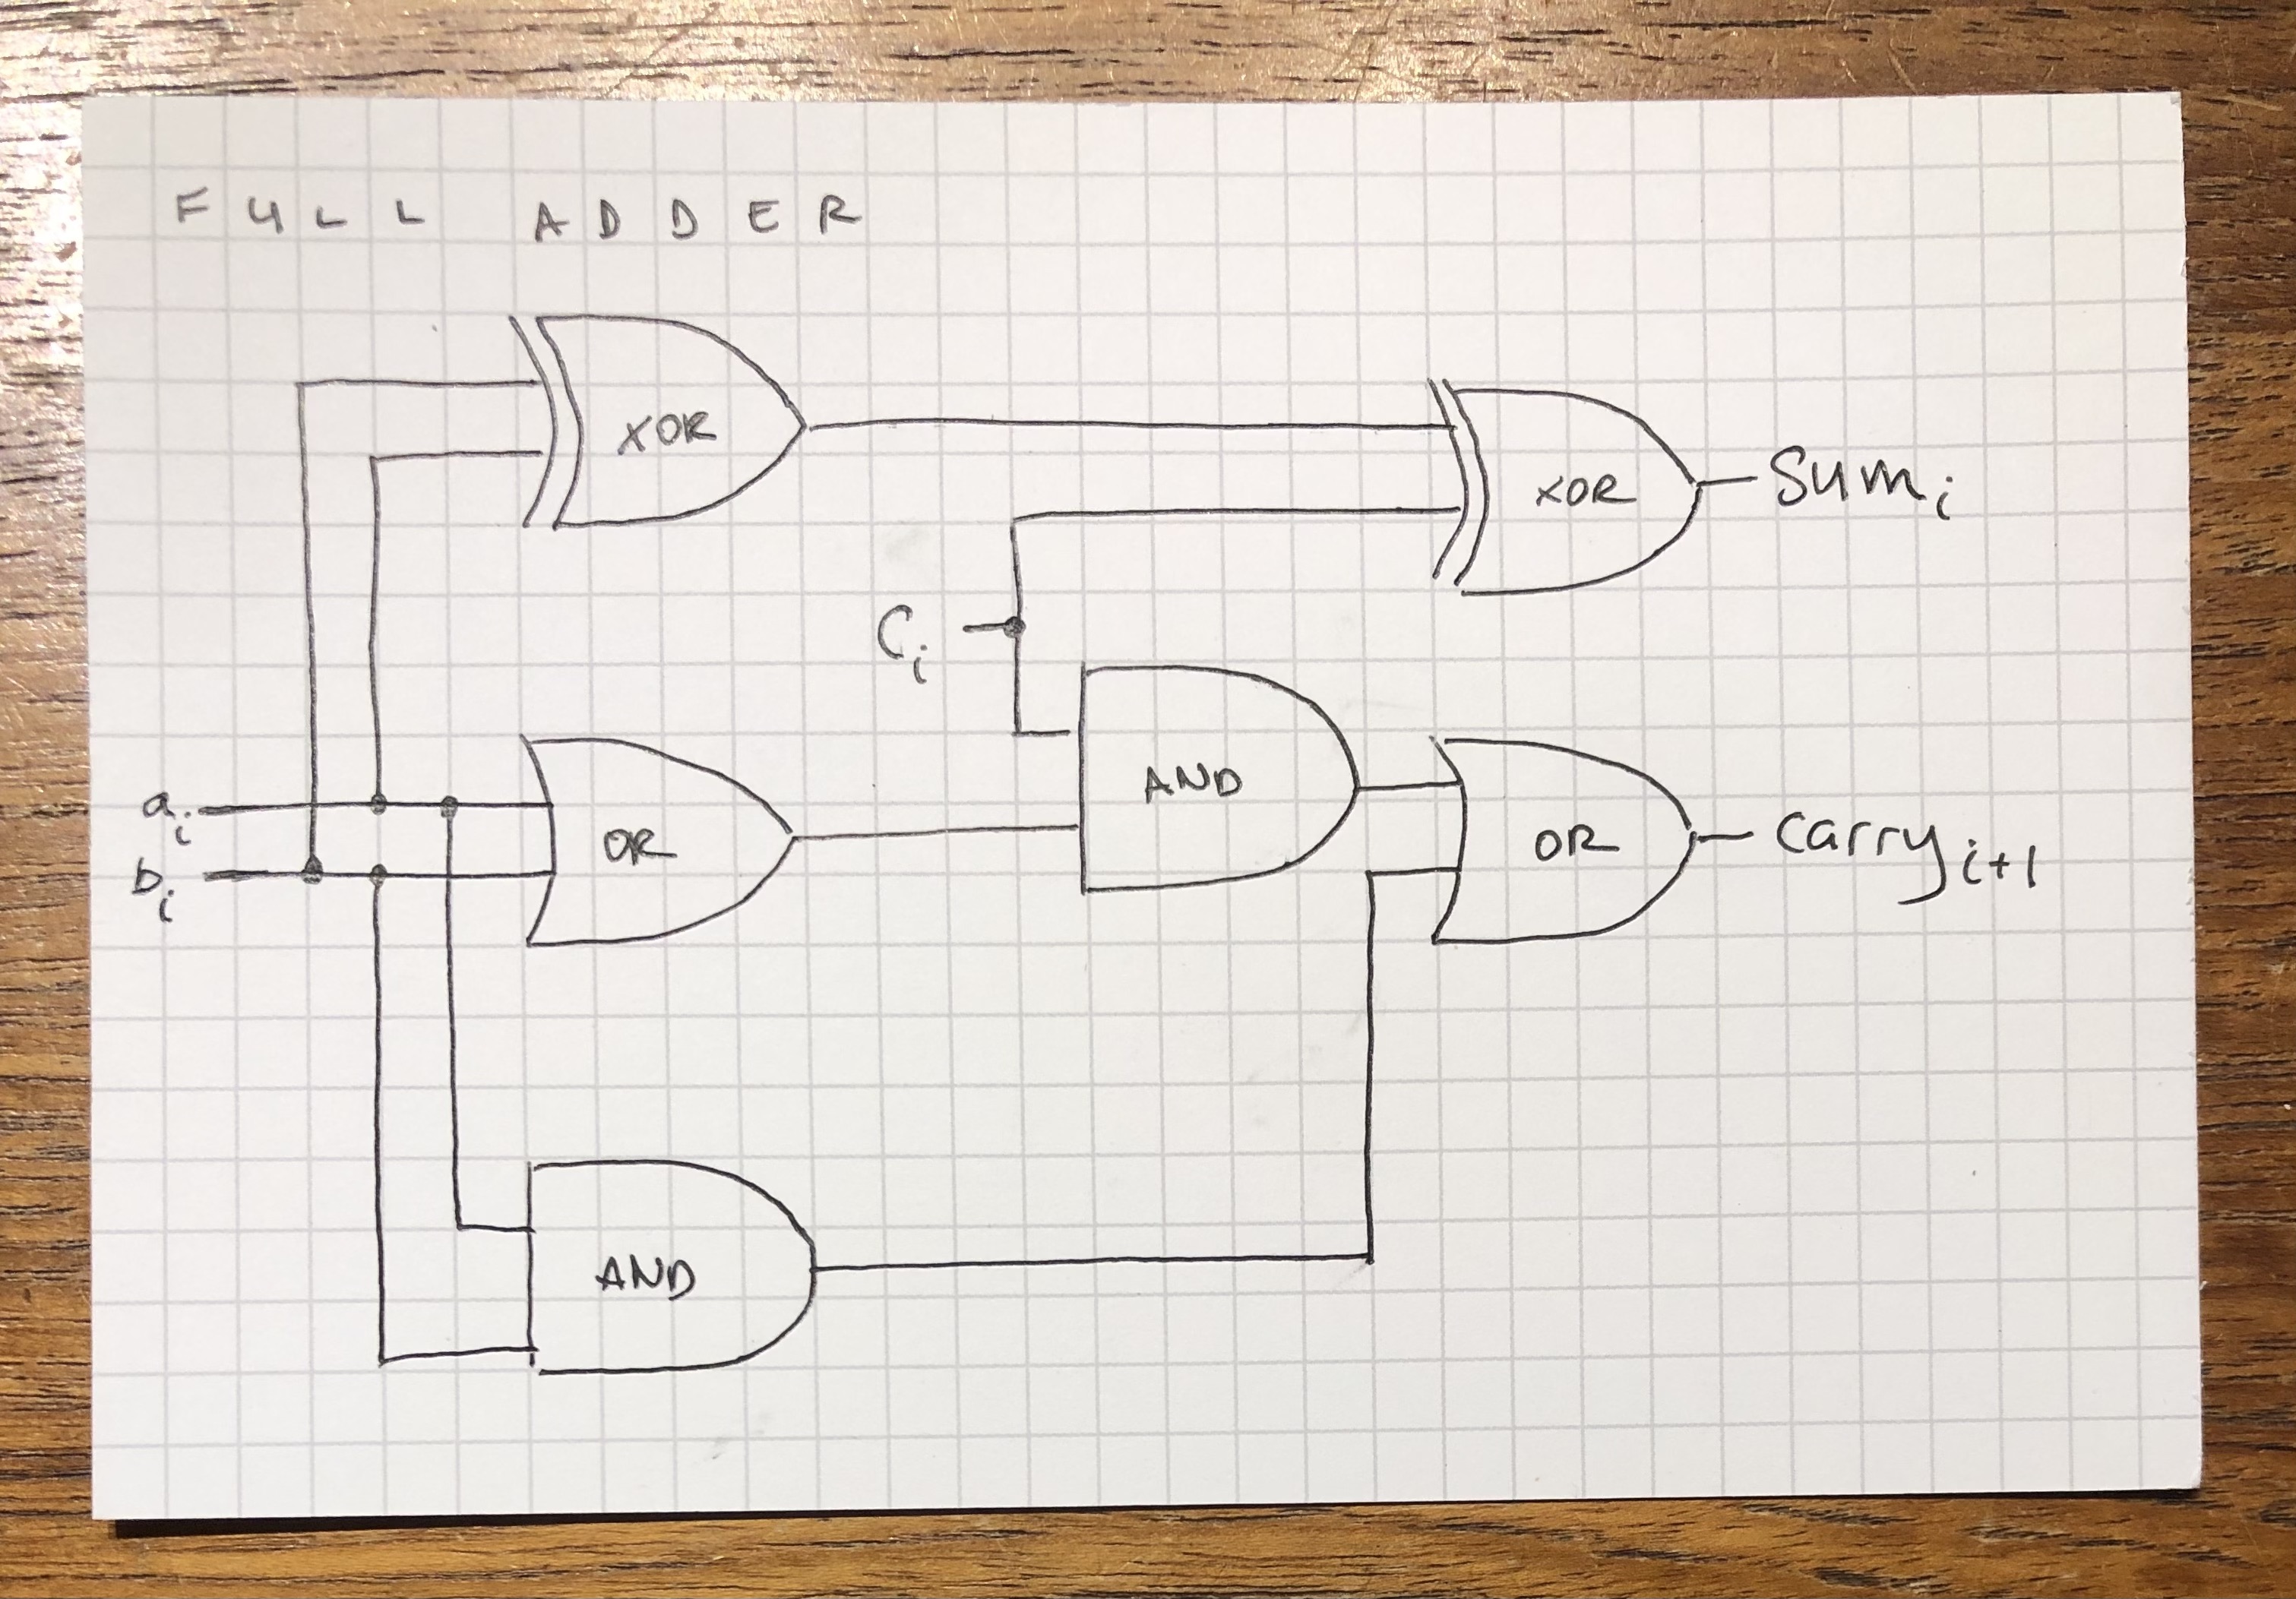 FULL ADDER
XOR
XOR
Sum i
C i
AND
a i
OR
OR
carry i+1
b i
AND